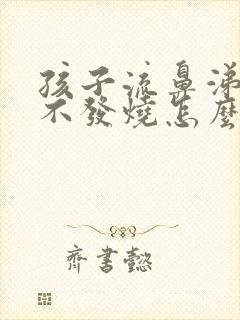 孩子流鼻涕
不發燒怎麼
齊書懿